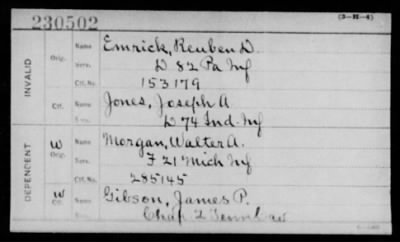 230502 (3-H-4)
INVALID
Orig. Name Emrick, Reuben D.
Serv. D 82 Pa Inf
Ctf. No. 153179
Ctf. Name Jones, Joseph A
D 74 Ind. Inf
DEPENDENT
W Orig. Name Morgan, Walter A.
Serv. F 21 Mich Inf
Ctf. No. 285145
W Ctf. Name Gibson, James P.
Chap 2 Tenn Cav